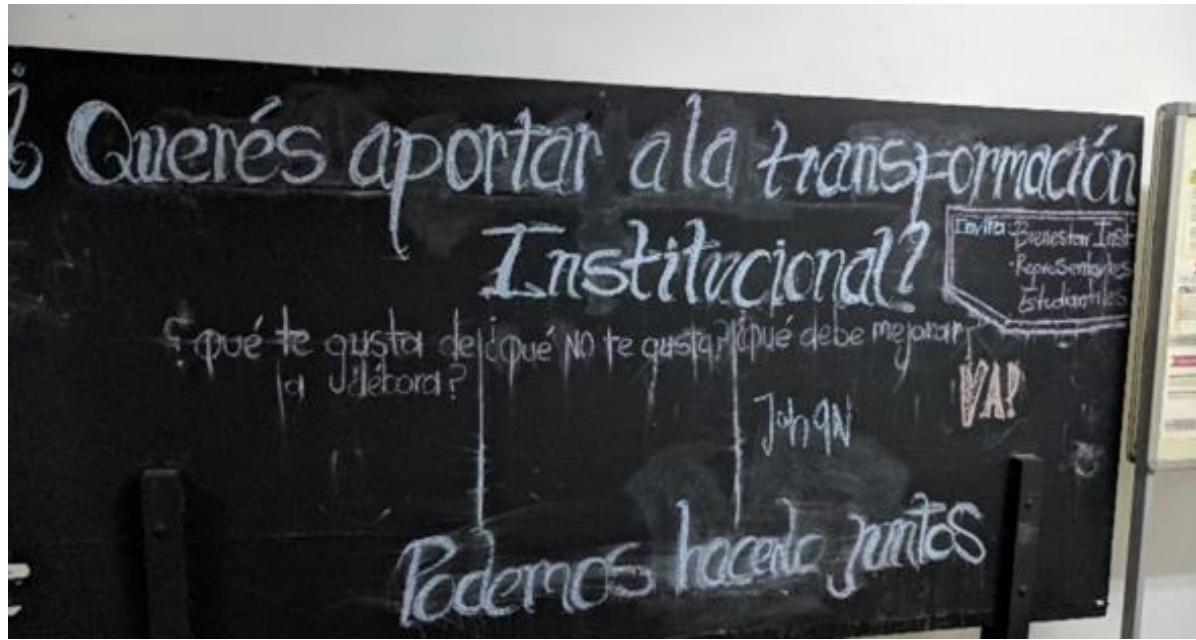 ¿Querés aportar a la transformación
Institucional?
Invita: Bienestar Inst
·Representantes
Estudiantiles
¿qué te gusta de
la Débora?
¿qué NO te gusta?
¿qué debe mejorar
VA!
Podemos hacerlo juntos